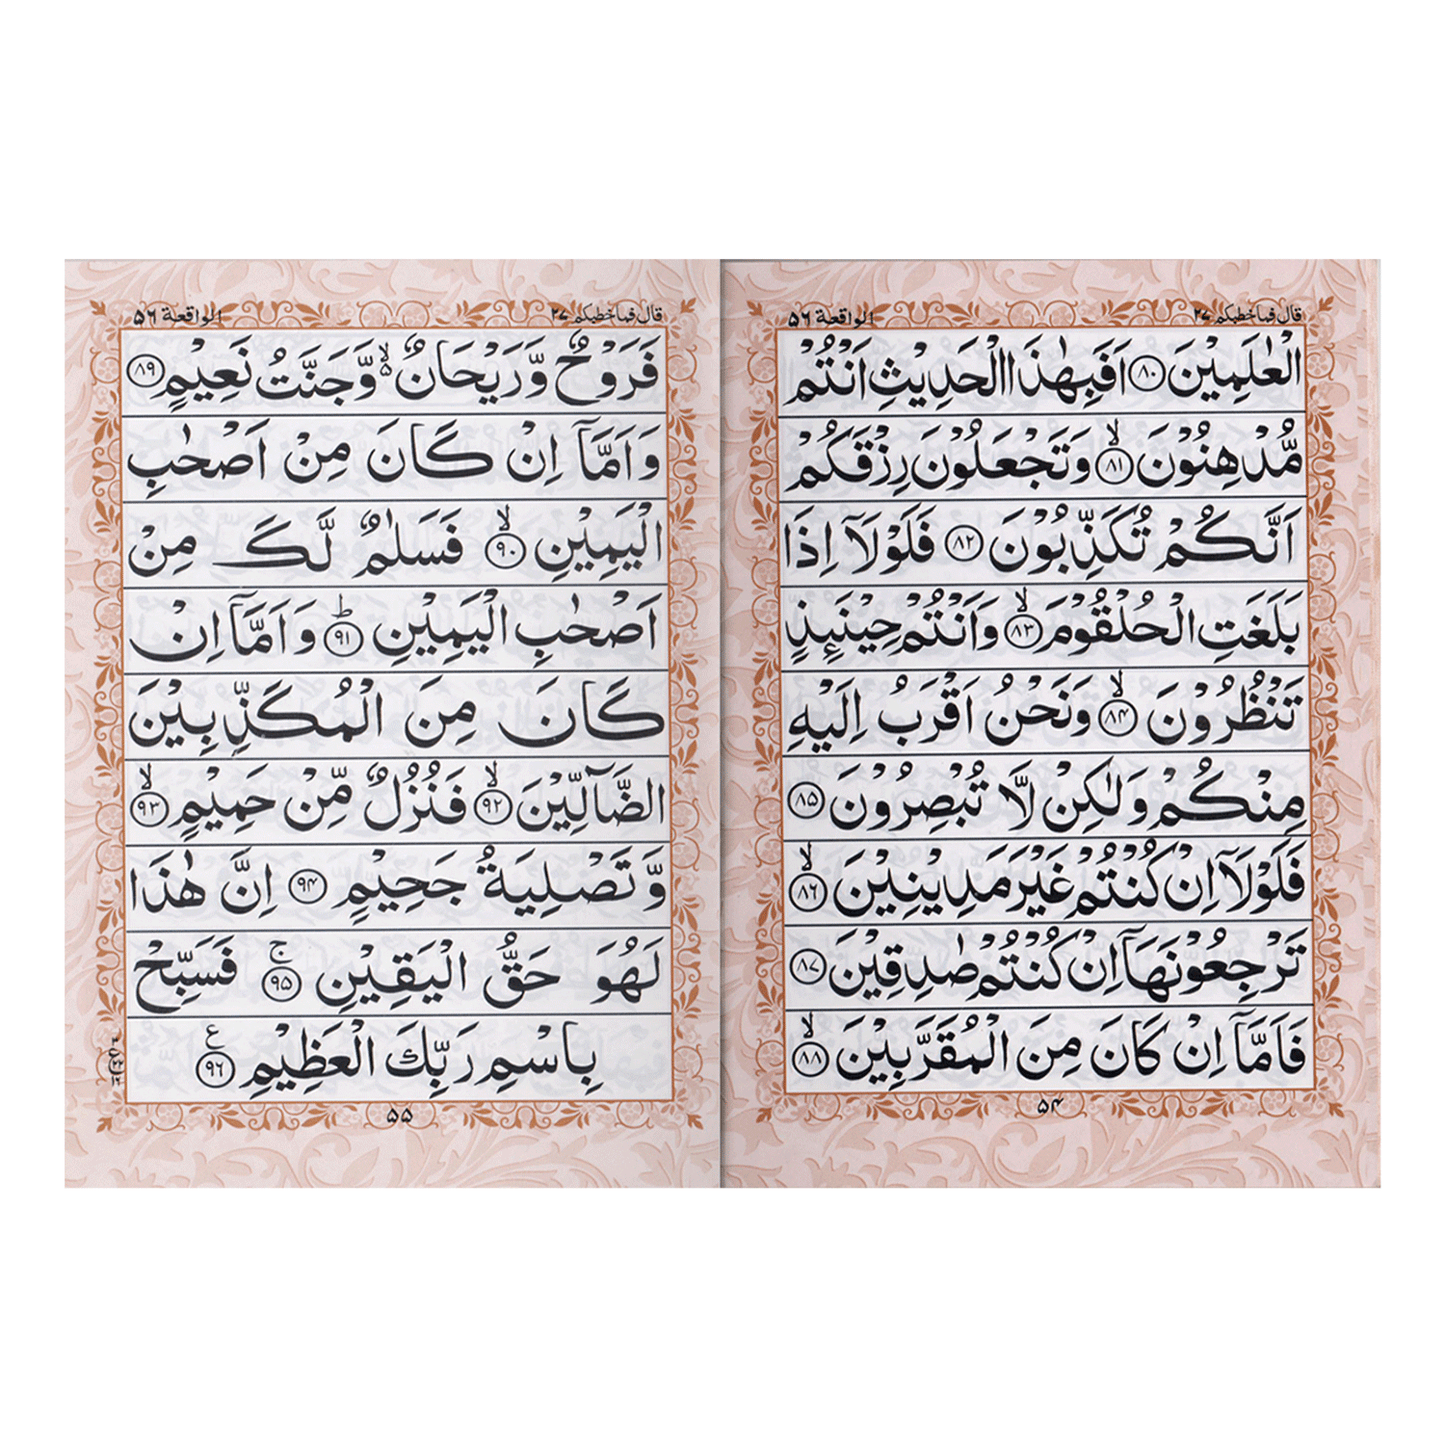 قال فماخطبكم ٢٧
الواقعة ٥٦
الْعٰلَمِيْنَ ۝٨٠ اَفَبِهٰذَا الْحَدِيْثِ اَنْتُمْ
مُّدْهِنُوْنَ ۝ۙ٨١ وَتَجْعَلُوْنَ رِزْقَكُمْ
اَنَّكُمْ تُكَذِّبُوْنَ ۝٨٢ فَلَوْلَاۤ اِذَا
بَلَغَتِ الْحُلْقُوْمَ ۝ۙ٨٣ وَاَنْتُمْ حِيْنَىِٕذٍ
تَنْظُرُوْنَ ۝ۙ٨۴ وَنَحْنُ اَقْرَبُ اِلَيْهِ
مِنْكُمْ وَلٰكِنْ لَّا تُبْصِرُوْنَ ۝٨۵
فَلَوْلَاۤ اِنْ كُنْتُمْ غَيْرَ مَدِيْنِيْنَ ۝ۙ٨٦
تَرْجِعُوْنَهَاۤ اِنْ كُنْتُمْ صٰدِقِيْنَ ۝٨٧
فَاَمَّاۤ اِنْ كَانَ مِنَ الْمُقَرَّبِيْنَ ۝ۙ٨٨
۵۴
قال فماخطبكم ٢٧
الواقعة ٥٦
فَرَوْحٌ وَّرَيْحَانٌ ۙ۬ وَّجَنَّتُ نَعِيْمٍ ۝٨٩
وَاَمَّاۤ اِنْ كَانَ مِنْ اَصْحٰبِ
الْيَمِيْنِ ۝ۙ٩٠ فَسَلٰمٌ لَّكَ مِنْ
اَصْحٰبِ الْيَمِيْنِ ۝ؕ٩١ وَاَمَّاۤ اِنْ
كَانَ مِنَ الْمُكَذِّبِيْنَ
الضَّآلِّيْنَ ۝ۙ٩٢ فَنُزُلٌ مِّنْ حَمِيْمٍ ۝ۙ٩٣
وَّتَصْلِيَةُ جَحِيْمٍ ۝٩۴ اِنَّ هٰذَا
لَهُوَ حَقُّ الْيَقِيْنِ ۝ۚ٩۵ فَسَبِّحْ
بِاسْمِ رَبِّكَ الْعَظِيْمِ ۝٩٦ ع
۵۵